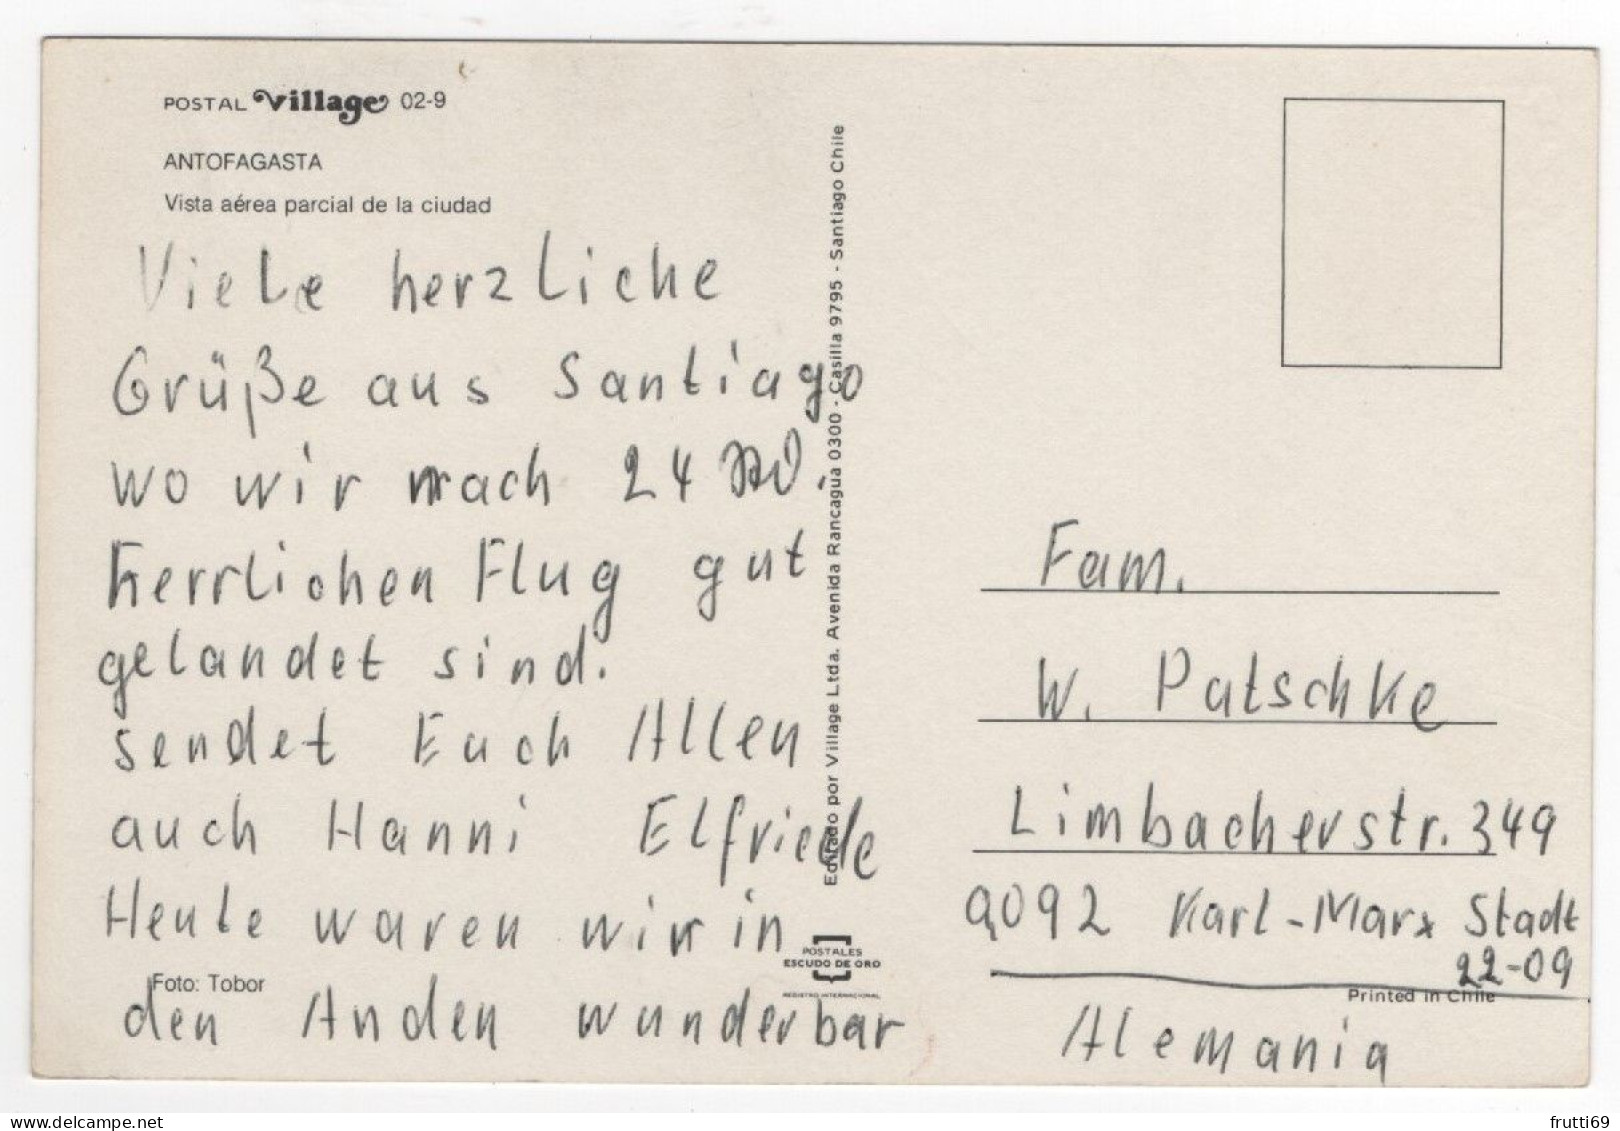 POSTAL Village 02-9
ANTOFAGASTA
Vista aérea parcial de la ciudad
Viele herzliche
Grüße aus Santiago
wo wir nach 24
herrlichen Flug gut
gelandet sind.
sendet Euch Allen
auch Hanni Elfriede
Heute waren wir in
Foto: Tobor
den Anden wunderbar
Editado por Village Ltda. Avenida Rancagua 0300 - Casilla 9795 - Santiago Chile
POSTALES
ESCUDO DE ORO
REGISTRO INTERNACIONAL
Fam.
W. Patschke
Limbacherstr. 349
9092 Karl-Marx Stadt
22-09
Printed in Chile
Alemania
www.delcampe.net
frutti69